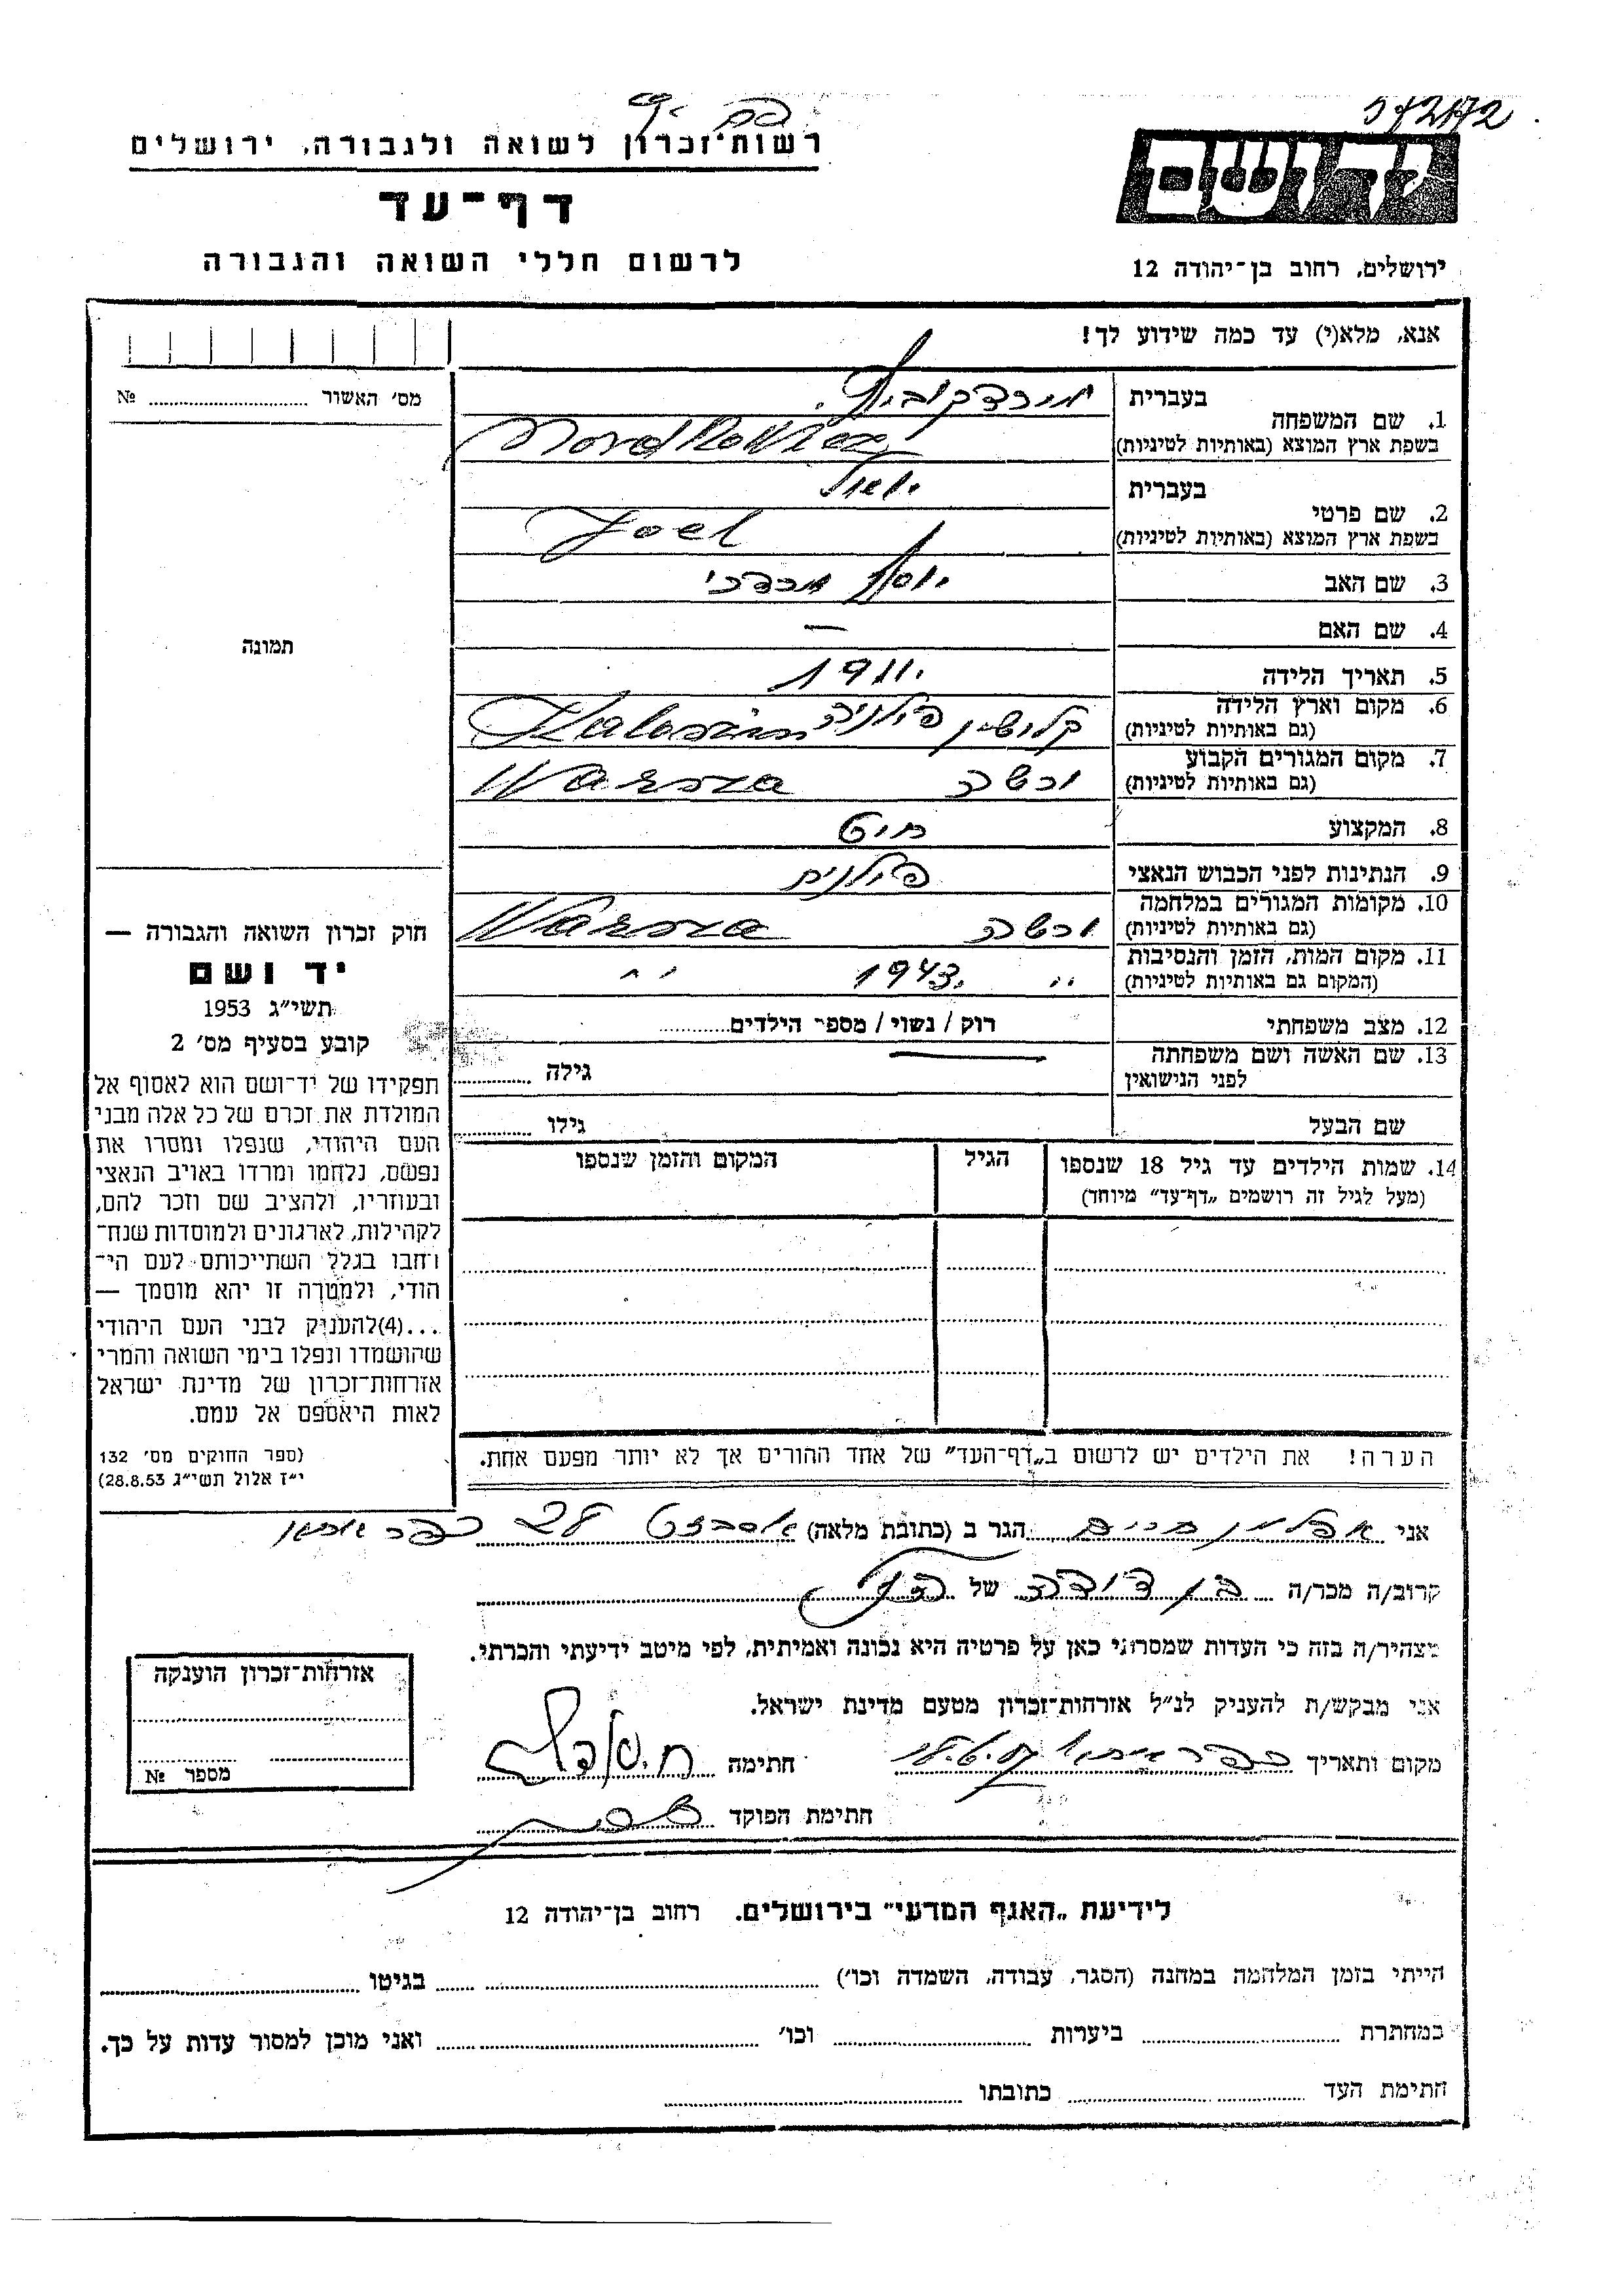 רשות־זכרון לשואה ולגבורה, ירושלים
דף־עד
לרשום חללי השואה והגבורה
יד ושם
ירושלים, רחוב בן־יהודה 12
אנא, מלא(י) עד כמה שידוע לך!
מס׳ האשור № 
1. שם המשפחה בעברית
בשפת ארץ המוצא (באותיות לטיניות)
2. שם פרטי בעברית יואל
בשפת ארץ המוצא (באותיות לטיניות) Joel
3. שם האב יוסף מרדכי
4. שם האם —
5. תאריך הלידה 1911
6. מקום וארץ הלידה
(גם באותיות לטיניות) קלושין פולניה
7. מקום המגורים הקבוע
(גם באותיות לטיניות) ורשה Warsza
8. המקצוע חיט
9. הנתינות לפני הכבוש הנאצי פולנית
10. מקומות המגורים במלחמה
(גם באותיות לטיניות) ורשה Warsza
11. מקום המות, הזמן והנסיבות
(המקום גם באותיות לטיניות) ״ 1943. ״
12. מצב משפחתי רוק / נשוי / מספר הילדים
13. שם האשה ושם משפחתה
לפני הנישואין גילה
שם הבעל גילו
14. שמות הילדים עד גיל 18 שנספו הגיל המקום והזמן שנספו
(מעל לגיל זה רושמים „דף־עד״ מיוחד)
הערה! את הילדים יש לרשום ב„דף־העד״ של אחד ההורים אך לא יותר מפעם אחת.
תמונה
חוק זכרון השואה והגבורה —
יד ושם
תשי״ג 1953
קובע בסעיף מס׳ 2
תפקידו של יד־ושם הוא לאסוף אל
המולדת את זכרם של כל אלה מבני
העם היהודי, שנפלו ומסרו את
נפשם, נלחמו ומרדו באויב הנאצי
ובעוזריו, ולהציב שם וזכר להם,
לקהילות, לארגונים ולמוסדות שנח־
רחבו בגלל השתייכותם לעם הי־
הודי, ולמטרה זו יהא מוסמך —
...(4)להעניק לבני העם היהודי
שהושמדו ונפלו בימי השואה והמרי
אזרחות־זכרון של מדינת ישראל
לאות היאספם אל עמם.
(ספר החוקים מס׳ 132
י״ז אלול תשי״ג 28.8.53)
אני חיים הגר ב (כתובת מלאה) 28
קרוב/ה מכר/ה בן דודה של
מצהיר/ה בזה כי העדות שמסרתי כאן על פרטיה היא נכונה ואמיתית, לפי מיטב ידיעתי והכרתי.
אני מבקש/ת להעניק לנ״ל אזרחות־זכרון מטעם מדינת ישראל.
מקום ותאריך חתימה
חתימת הפוקד
אזרחות־זכרון הוענקה
מספר №
לידיעת „האגף המדעי״ בירושלים. רחוב בן־יהודה 12
הייתי בזמן המלחמה במחנה (הסגר, עבודה, השמדה וכו׳) בגיטו
במחתרת ביערות וכו׳ ואני מוכן למסור עדות על כך.
חתימת העד כתובתו